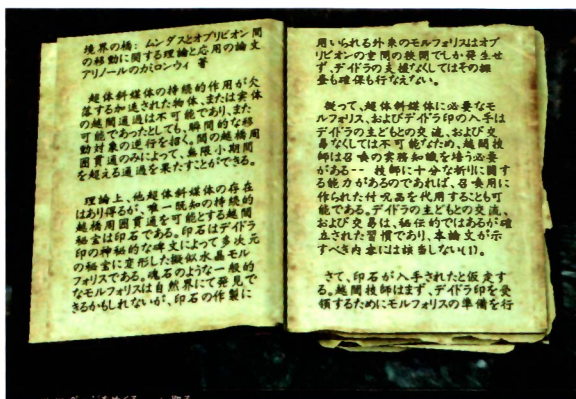 境界の橋: ムンダスとオブリビオン間
の移動に関する理論と応用の論文
アリノールのカミロンウィ 著
超体斜媒体の持続的作用が欠
落する加速された物体、または実体
の越間通過は不可能であり、また
可能であったとしても、瞬間的な移
動対象の逆行を招く。間の越橋周
囲貫通のみによって、無限小期間
を超える通過を果たすことができる。
理論上、他超体斜媒体の存在
はあり得るが、唯一既知の持続的
越橋周囲貫通を可能とする越間
秘宝は印石である。印石はデイドラ
印の神秘的な碑文によって多次元
の秘宝に変形した擬似水晶モル
フォリスである。魂石のような一般的
なモルフォリスは自然界にて発見で
きるかもしれないが、印石の作製に
用いられる外来のモルフォリスはオブ
リビオンの空間の狭間でしか発生せ
ず、デイドラの支援なくしてはその
も確保も行なえない。
従って、超体斜媒体に必要なモ
ルフォリス、およびデイドラ印の入手は
デイドラの主どもとの交流、および交
易なくしては不可能なため、越間技
師は召喚の実務知識を培う必要
がある-- 技師に十分な祈りに関す
る能力があるのであれば、召喚用に
作られた付呪品を代用することも可
能である。デイドラの主どもとの交流、
および交易は、秘伝的ではあるが確
立された習慣であり、本論文が示
すべき内容には該当しない(1)。
さて、印石が入手されたと仮定す
る。越間技師はまず、デイドラ印を受
領するためにモルフォリスの準備を行